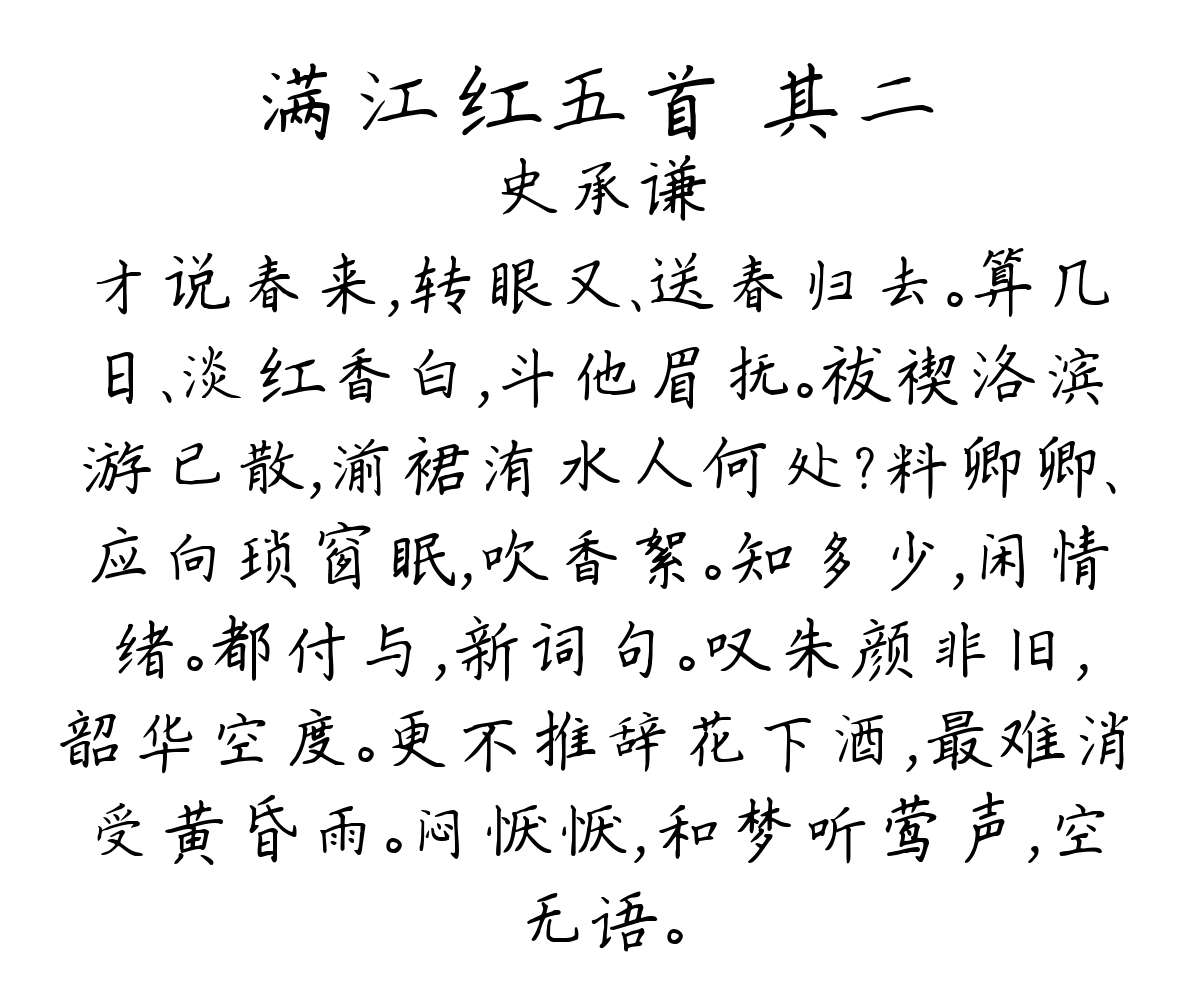 满江红五首 其二
史承谦
才说春来,转眼又、送春归去。算几
日、淡红香白,斗他眉抚。祓禊洛滨
游已散,湔裙洧水人何处?料卿卿、
应向琐窗眠,吹香絮。知多少,闲情
绪。都付与,新词句。叹朱颜非旧,
韶华空度。更不推辞花下酒,最难消
受黄昏雨。闷恹恹,和梦听莺声,空
无语。